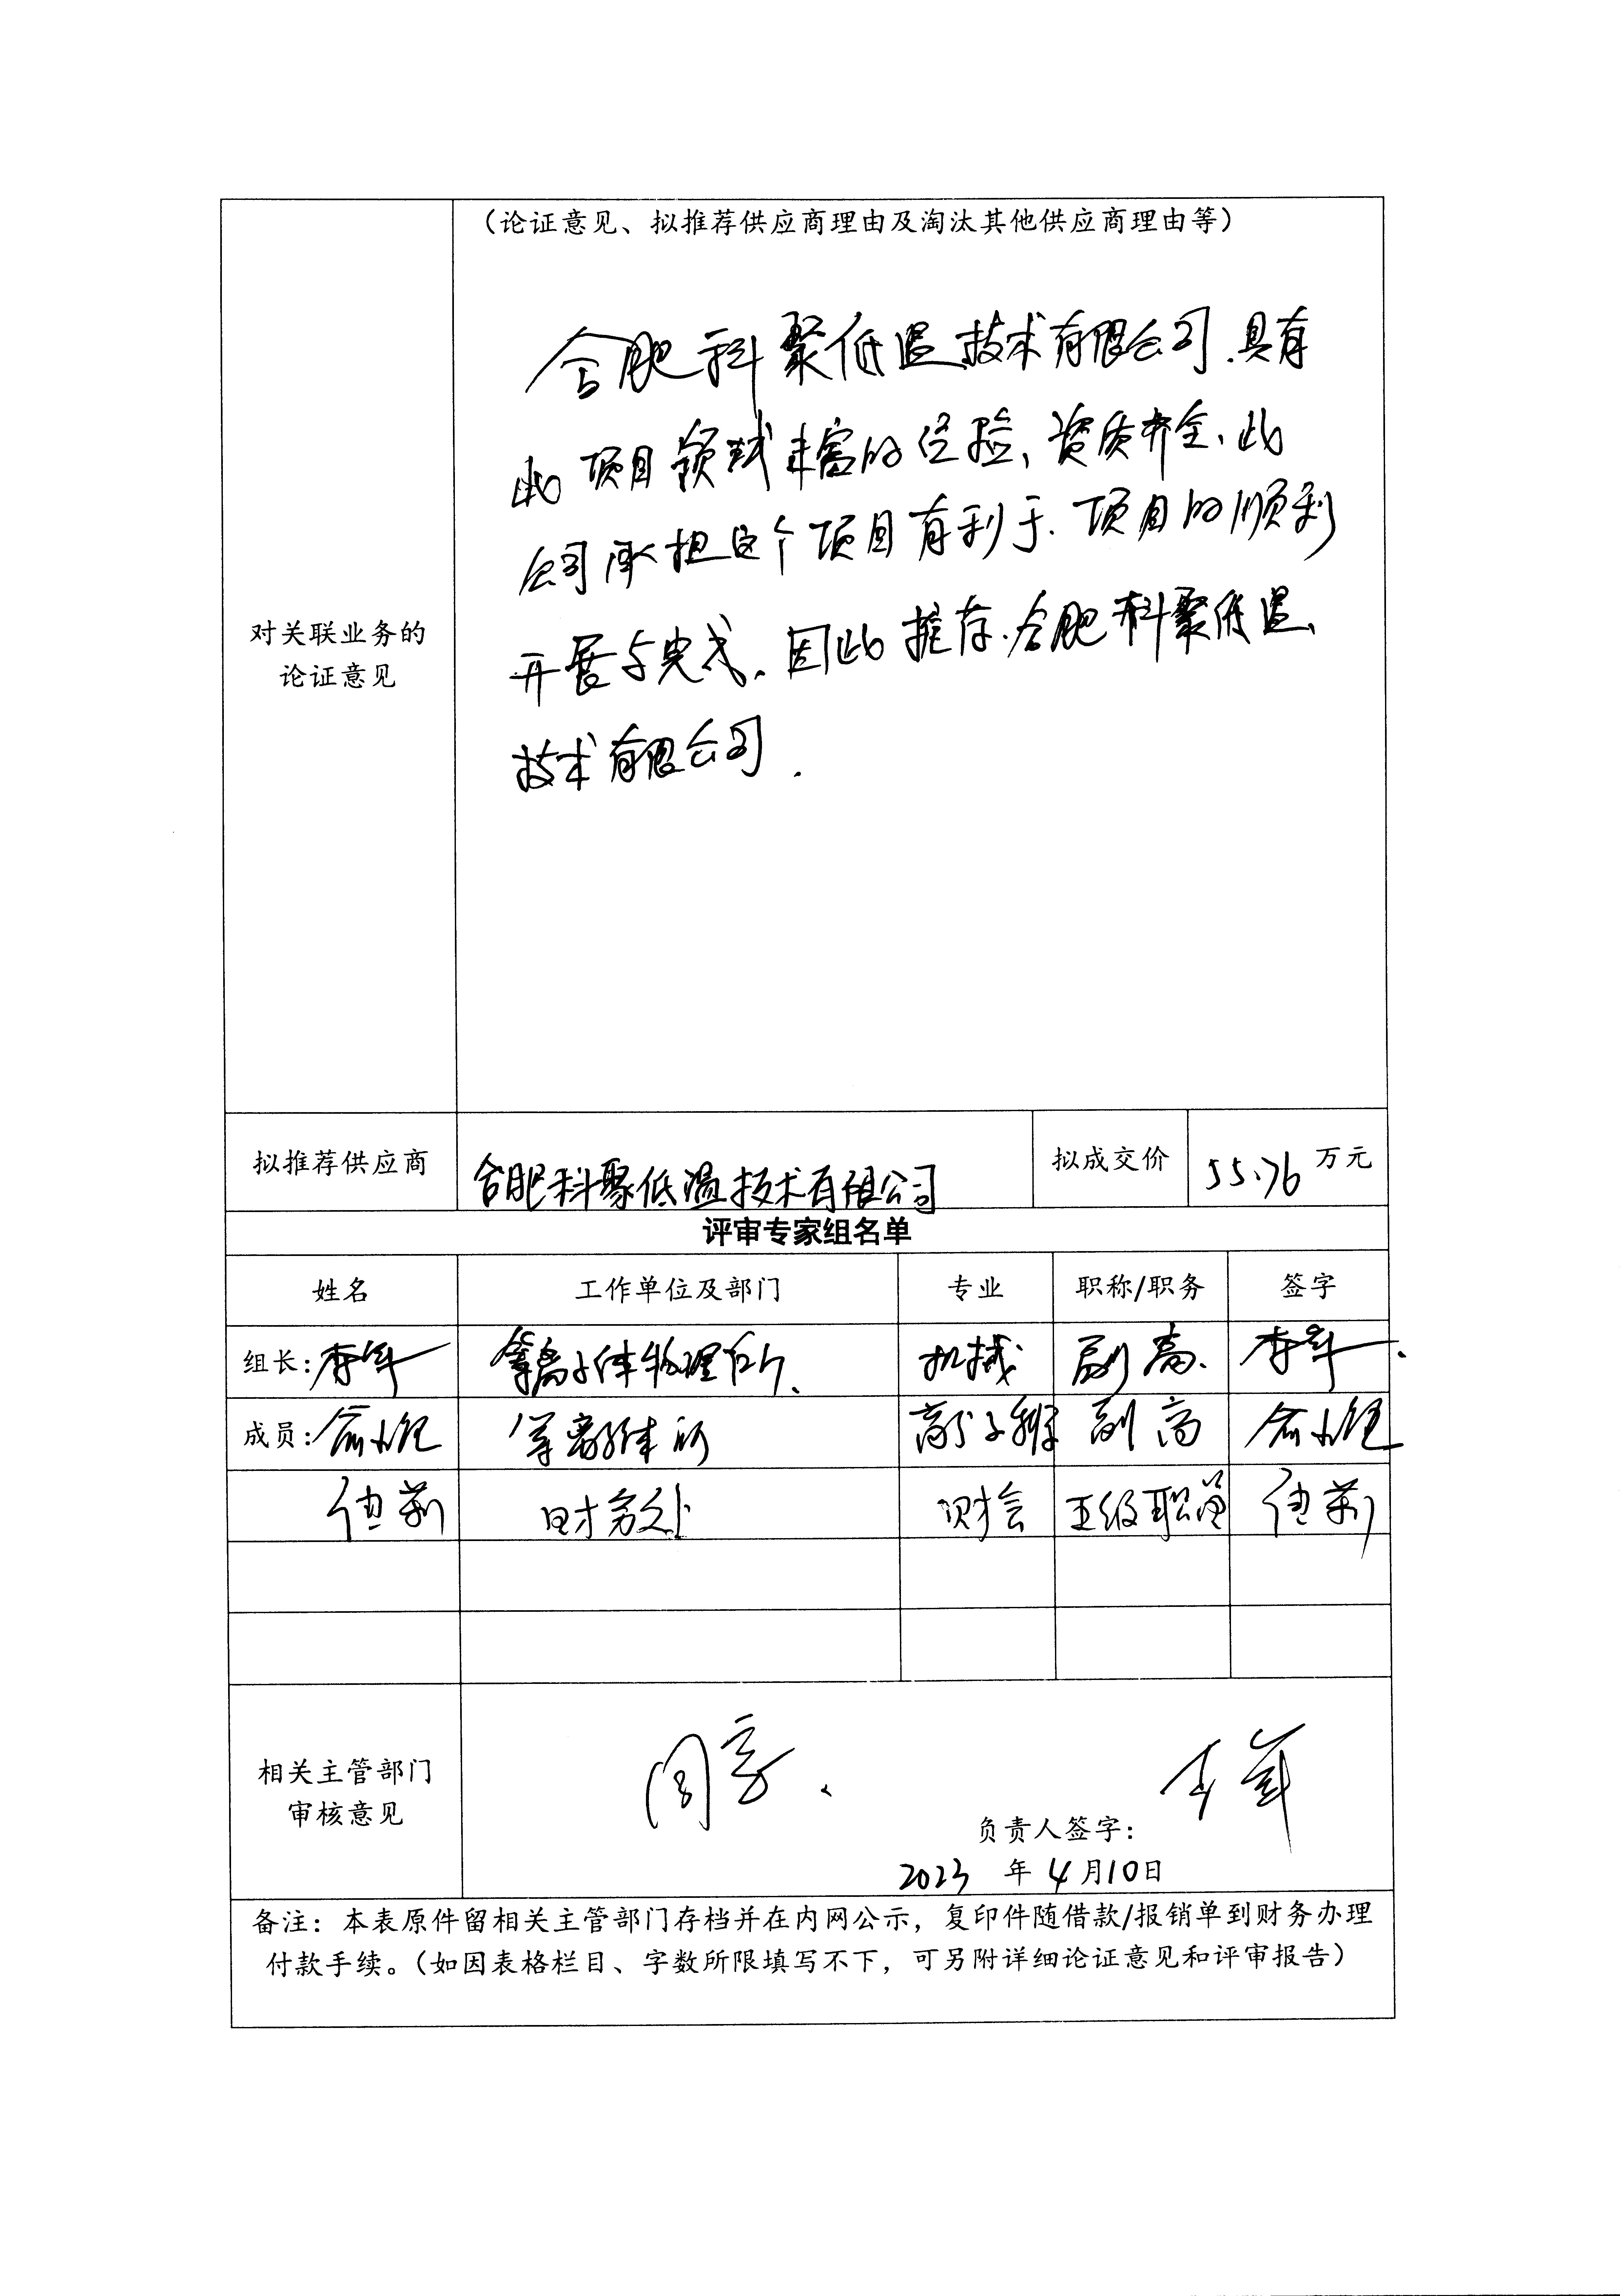 （论证意见、拟推荐供应商理由及淘汰其他供应商理由等）
合肥科聚低温技术有限公司.具有
此项目领域丰富的经验、资质齐全、此
公司承担这个项目有利于.项目的顺利
开展与完成.因此推荐.合肥科聚低温、
技术有限公司.
对关联业务的
论证意见
拟推荐供应商 合肥科聚低温技术有限公司 拟成交价 55.76 万元
评审专家组名单
姓名 工作单位及部门 专业 职称/职务 签字
组长: 等离子体物理所、 机械 副高.
成员: 等离子体所 副高
财务处 财会 五级职员
相关主管部门
审核意见
同意、
负责人签字:
2023 年 4 月 10 日
备注：本表原件留相关主管部门存档并在内网公示，复印件随借款/报销单到财务办理
付款手续。（如因表格栏目、字数所限填写不下，可另附详细论证意见和评审报告）